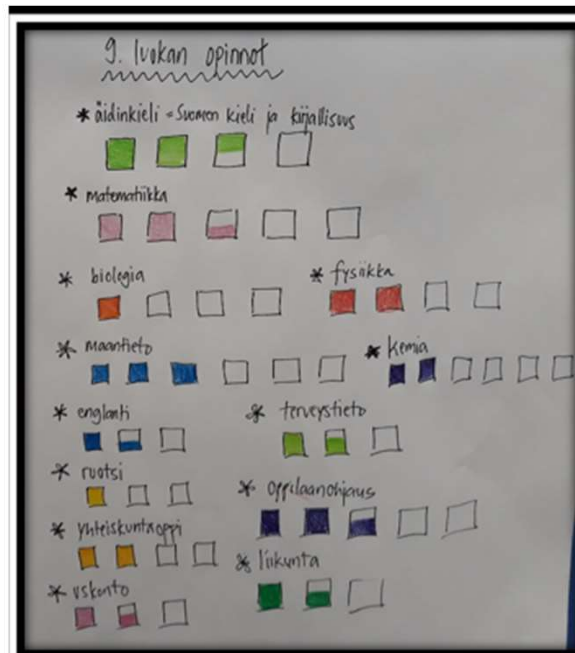 9. luokan opinnot
* äidinkieli = Suomen kieli ja kirjallisuus
* matematiikka
* biologia
* fysiikka
* maantieto
* kemia
* englanti
* terveystieto
* ruotsi
* oppilaanohjaus
* yhteiskuntaoppi
* liikunta
* uskonto